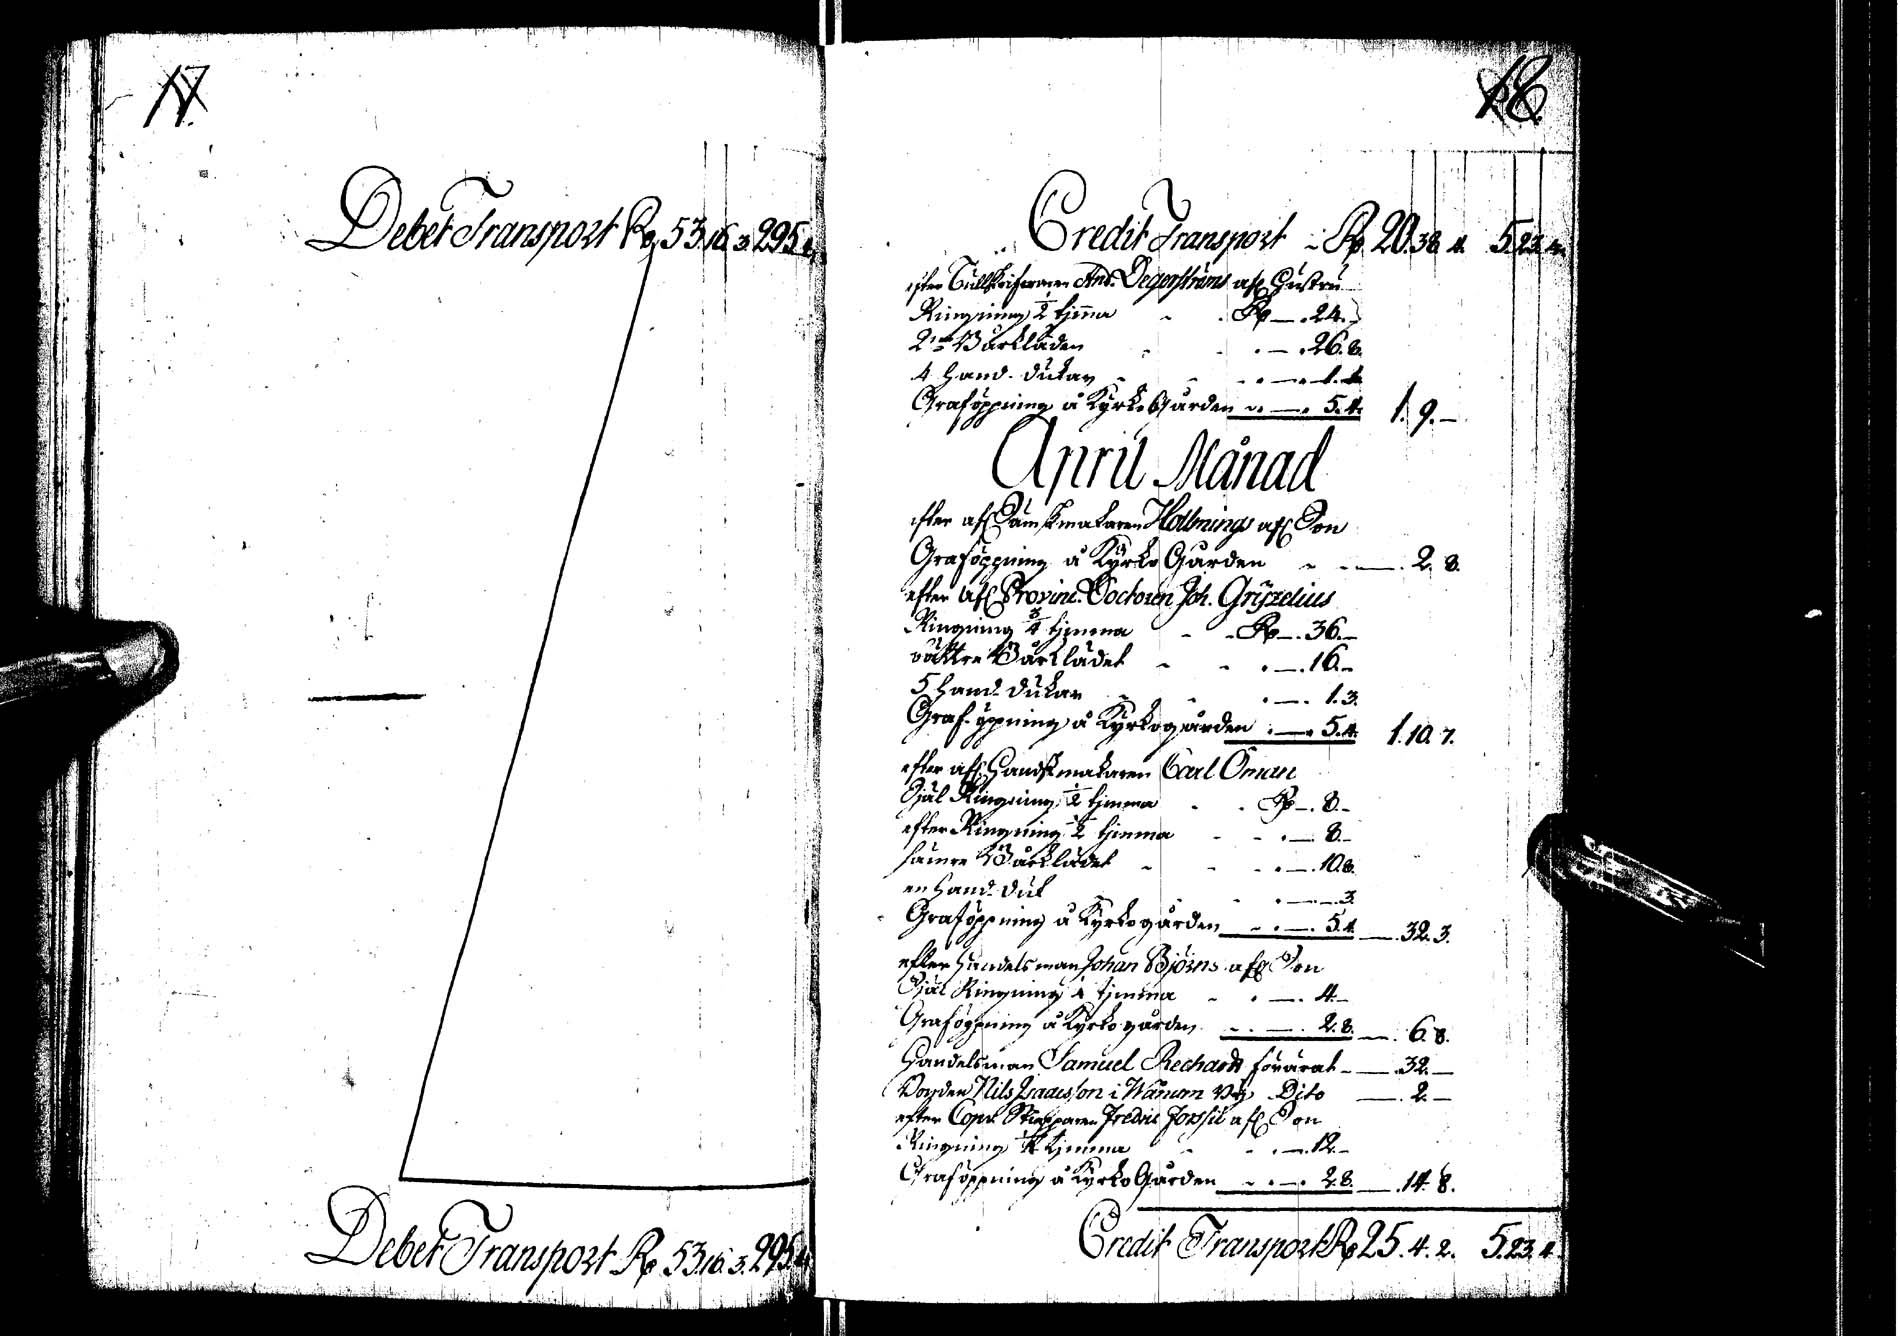 17.
Debet Transport Rg 53.16.3. 295.4.
Debet Transport Rg 53.16.3. 295.4.
18.
Credit Transport - Rg 20.38.4. 5.23.4.
efter Tullskrifvaren And. Degerströms afl. Hustru
Ringning 1/2 tjmma - - Rg —.24.-
2ne Bårkläden - - . —.26.8.
4 Hand-dukar - - . —. 1.
Graföppning å KyrkoGården - . —. 5.4. 1. 9.—
April Månad
efter afl. Sämskmakaren Hollmings afl. Son
Graföppning å KyrkoGården - - —. 2. 8.
efter Afl. Provinc. Doctoren Joh. Gryzelius
Ringning 3/4 tjmma - - Rg —. 36.—
bättre Bårklädet - - . —. 16.—
5 Hand-dukar - - . —. 1.3.
Graf-öppning å Kyrkogården . —. 5.4. 1.10.7.
efter afl. Handskmakaren Carl Öman
Själ Ringning 1/2 tjmma - - Rg —. 8.—
efter Ringning 1/2 tjmma - - . —. 8.—
sämre Bårklädet - - . —. 10.8.
en Hand-duk - . —.—.3.
Graföppning å Kyrkogården - . —. 5.4. —.32.3.
efter Handelsman Johan Björns afl. Son
Själ Ringning tjmma - . —. 4.—
Graföppning å Kyrkogården - . —. 2.8. —. 6.8.
Handelsman Samuel Rechardt förärat - —.32.—
Nils Isaacsson i Wånum Dito —. 2.—
efter Copv. Skepparen Fredric Forssil afl. Son
Ringning 1/4 tjmma - - . —.12.—
Graföppning å KyrkoGården - . —. 2.8. —.14.8.
Credit Transport Rg 25.4.2. 5.23.4.